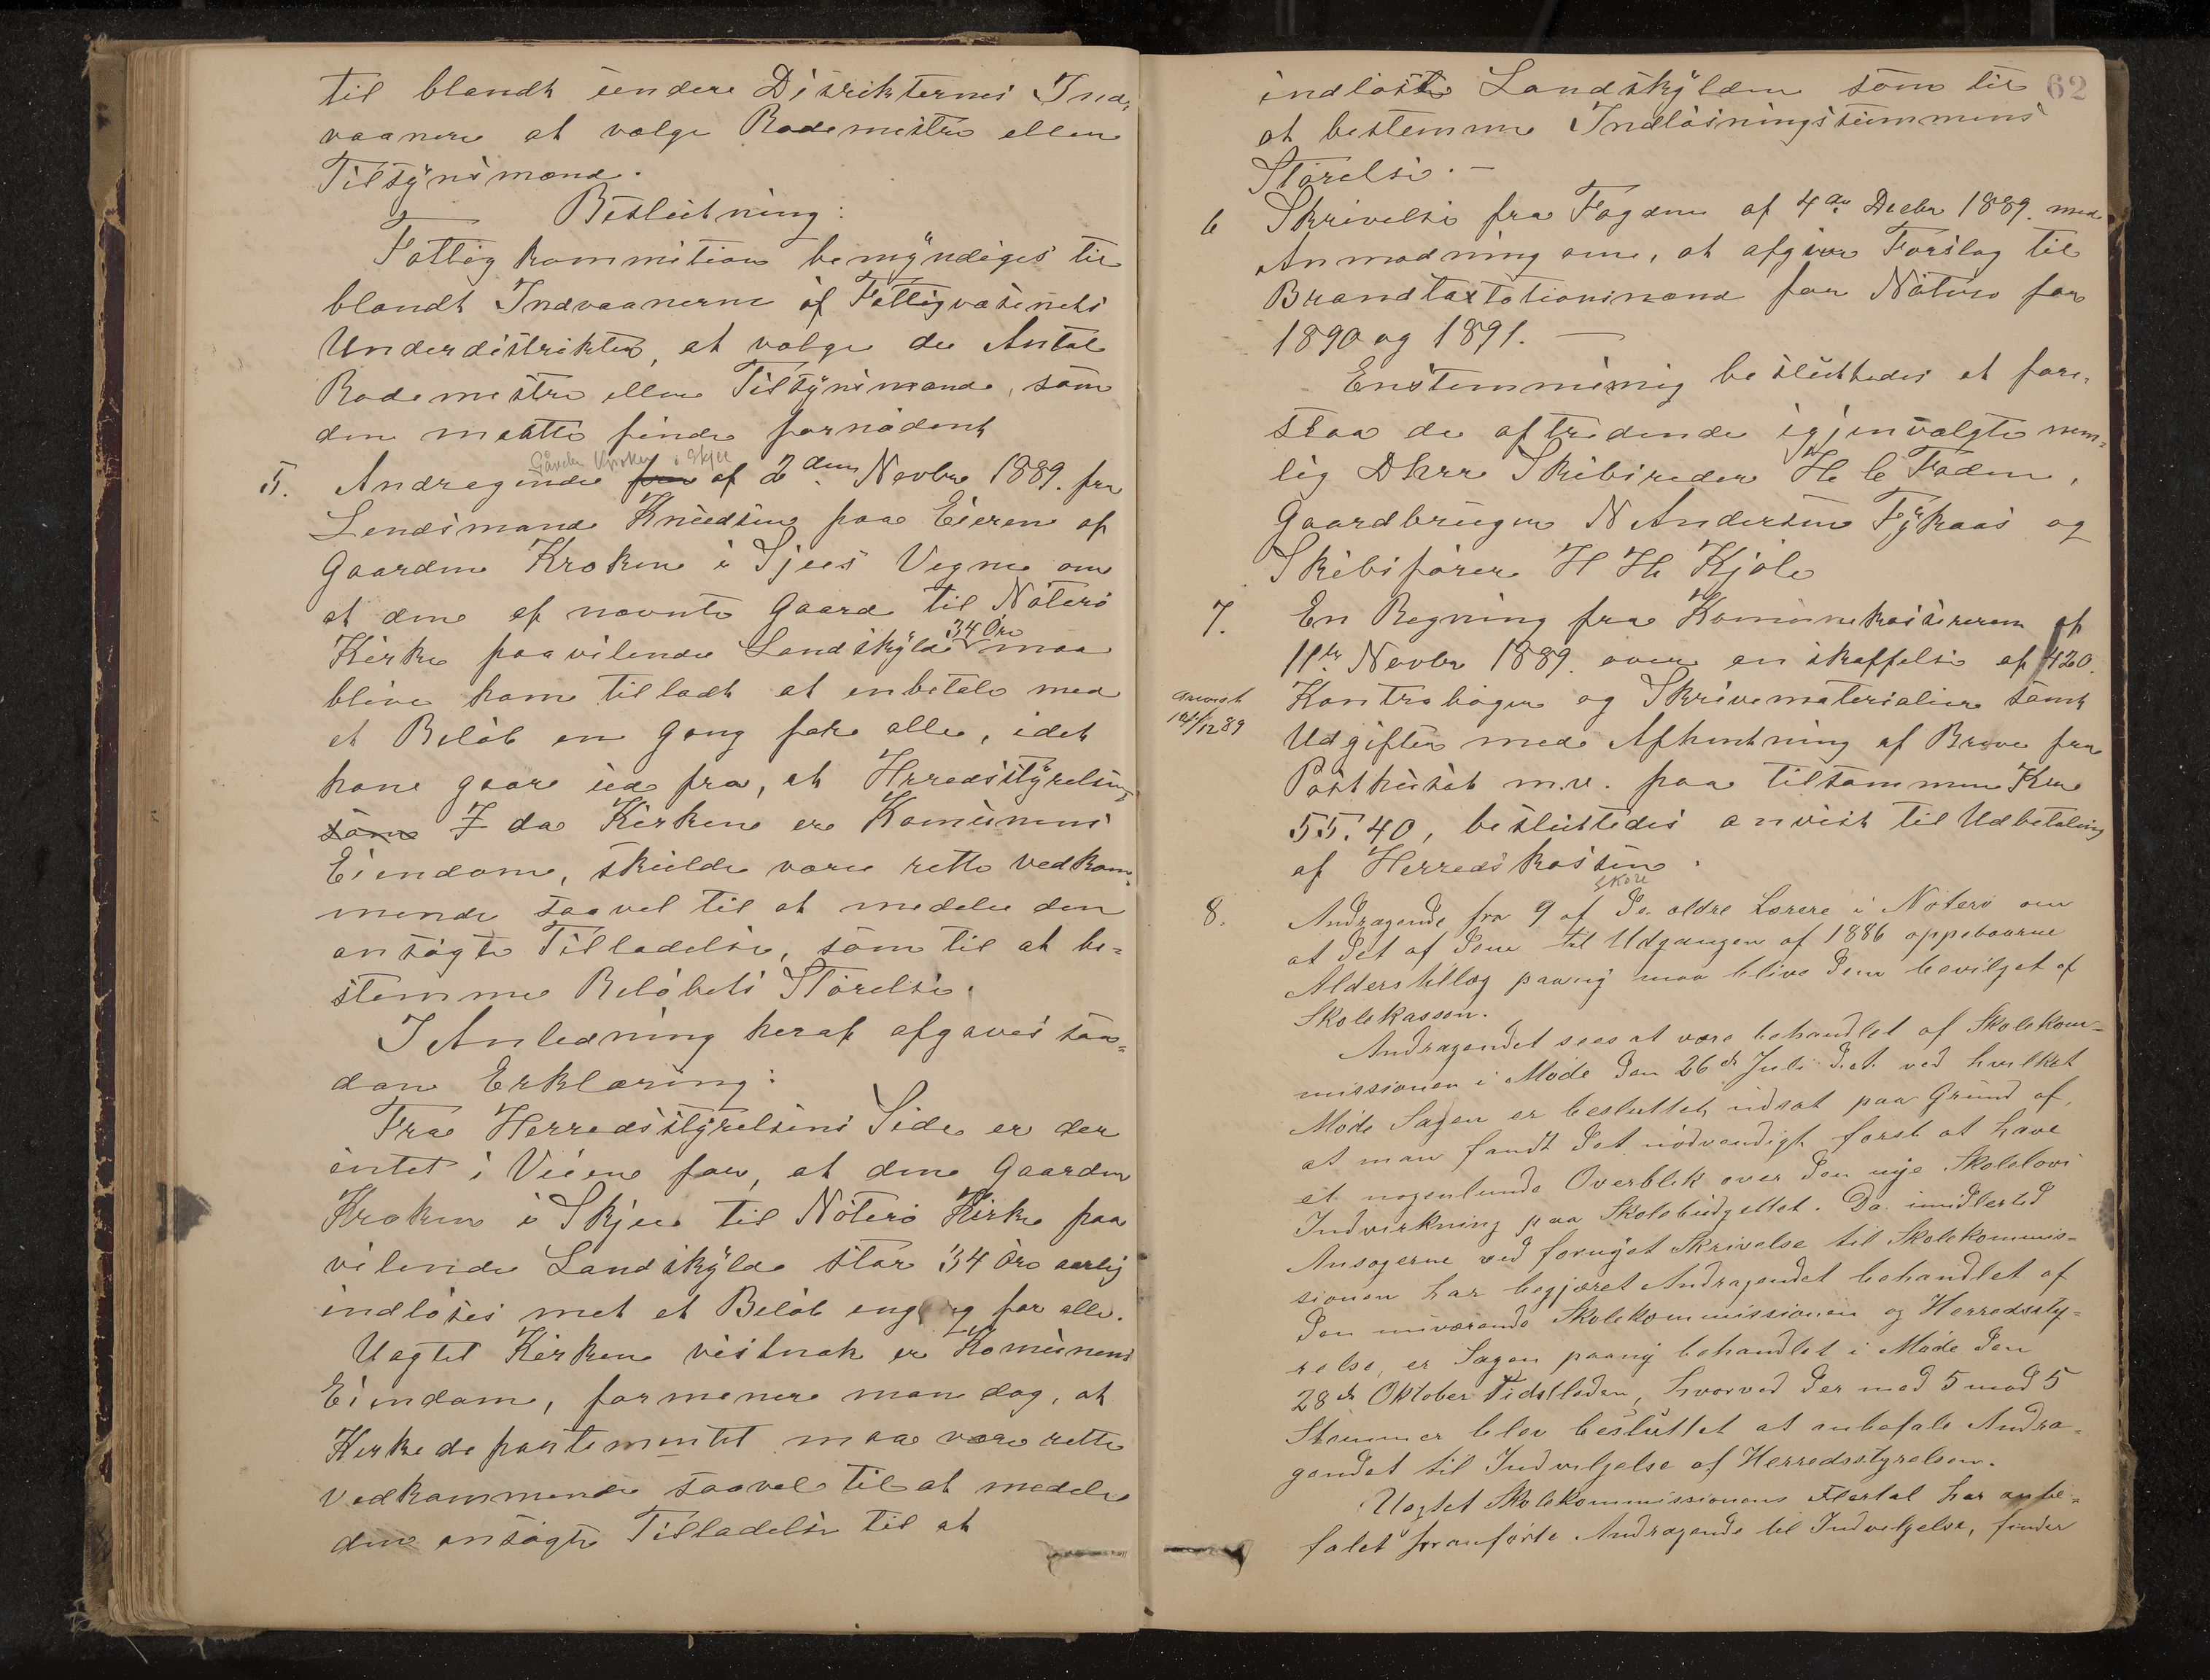 til blandt under Disrikternes Ind-
vaanere at vælge Rodemestre eller
Tilsynsmænd.
Beslutning:
Fattigkommition bemyndiges til
blandt Indvaanerne af Fattigvæsenets
Underdistrikter, at vælge de Antal
Rodemestre eller Tilsynsmænd, som
den maatte finde fornødent
Gården Kroken i Skjee
5. Andragende fra af 2den Novbr 1889. fra
Lendsmand Knudsen paa Eieren af
Gaarden Kroken i Sjees Vegne om
at den af nævnte Gaard til Nøterø
34 Øre
Kirke paavilende Landskyld maa
blive ham tilladt at enbetale med
et Beløb en Gang for alle, idet
han gaar ud fra, at Herredsstyrelsen,
som da Kirken er Komunens
Eiendom, skulde være rette vedkom-
mende saavel til at meddele den
ansøgte Tilladelse, som til at be-
stemme Beløbets Størelse.
I Anledning heraf afgaves saa-
dan Erklæring:
Fra Herredsstyrelsens Side er der
intet i Veien for, at den Gaarden
Kroken i Skjee til Nøterø Kirke paa
vilende Landskyld stor 34 Øre aarlig
indløses met et Beløb engang for alle.
Uagtet Kirken vistnok er Komunens
Eiendom, formener man dog, at
Kirkedepartementet maa være rette
vedkommende saavel til at meddele
den ansøgte Tilladelse til at
62
indløse Landskylden som til
at bestemme Indløsningssummens
Størelse. —
6 Skrivelse fra Fogden af 4de Decbr 1889. med
Anmodning om, at afgive Forslag til
Brandtaxtationsmænd for Nøterø for
1890 og 1891. —
Enstemmig besluttedes at fore-
slaa de aftrædende igjenvalgte nem-
lig Dhrr Skibsreder H C Foden,
Gaardbruger N Andersen Fykaas og
Skibsfører H H Kjøle
7. En Regning fra Komunekassereren af
11te Novbr 1889. over anskaffelse af 420.
Anvist
14/12 89
Kontrabøger og Skrivematerialier samt
Udgifter med Afhentning af Breve fra
Posthuset m.v. paa tilsammen Kr
55.40, besluttedes anvist til Udbetaling
af Herredskassen.
8. Andragende fra 9 af De ældre Lærere i Nøterø om
at det af dem til Udgangen af 1886 oppebaarne
Alderstillæg paany maa blive dem bevilget af
Skolekassen.
Andragendet sees at være behandlet af Skolekom-
missionen i Møde den 26de Juli d.A. ved hvilket
Møde Sagen er besluttet udsat paa Grund af,
at man fandt det nødvendigt først at have
et nogenlunde Overblik over den nye Skolelovs
Indvirkning paa Skolebudgettet. Da imidlertid
Ansøgerne ved fornyet Skrivelse til Skolekommis-
sionen har begjæret Andragendet behandlet af
den nuværende Skolekommissionen og Herredssty-
relse, er Sagen paany behandlet i Møde den
28de Oktober sidstleden, hvorved der med 5 mod 5
Stemmer blev besluttet at anbefale Andra-
gendet til Indvilgelse af Herredsstyrelsen.
Uagtet Skolekommissionens Flertal har anbe-
falet foranførte Andragende til Indvilgelse, finder